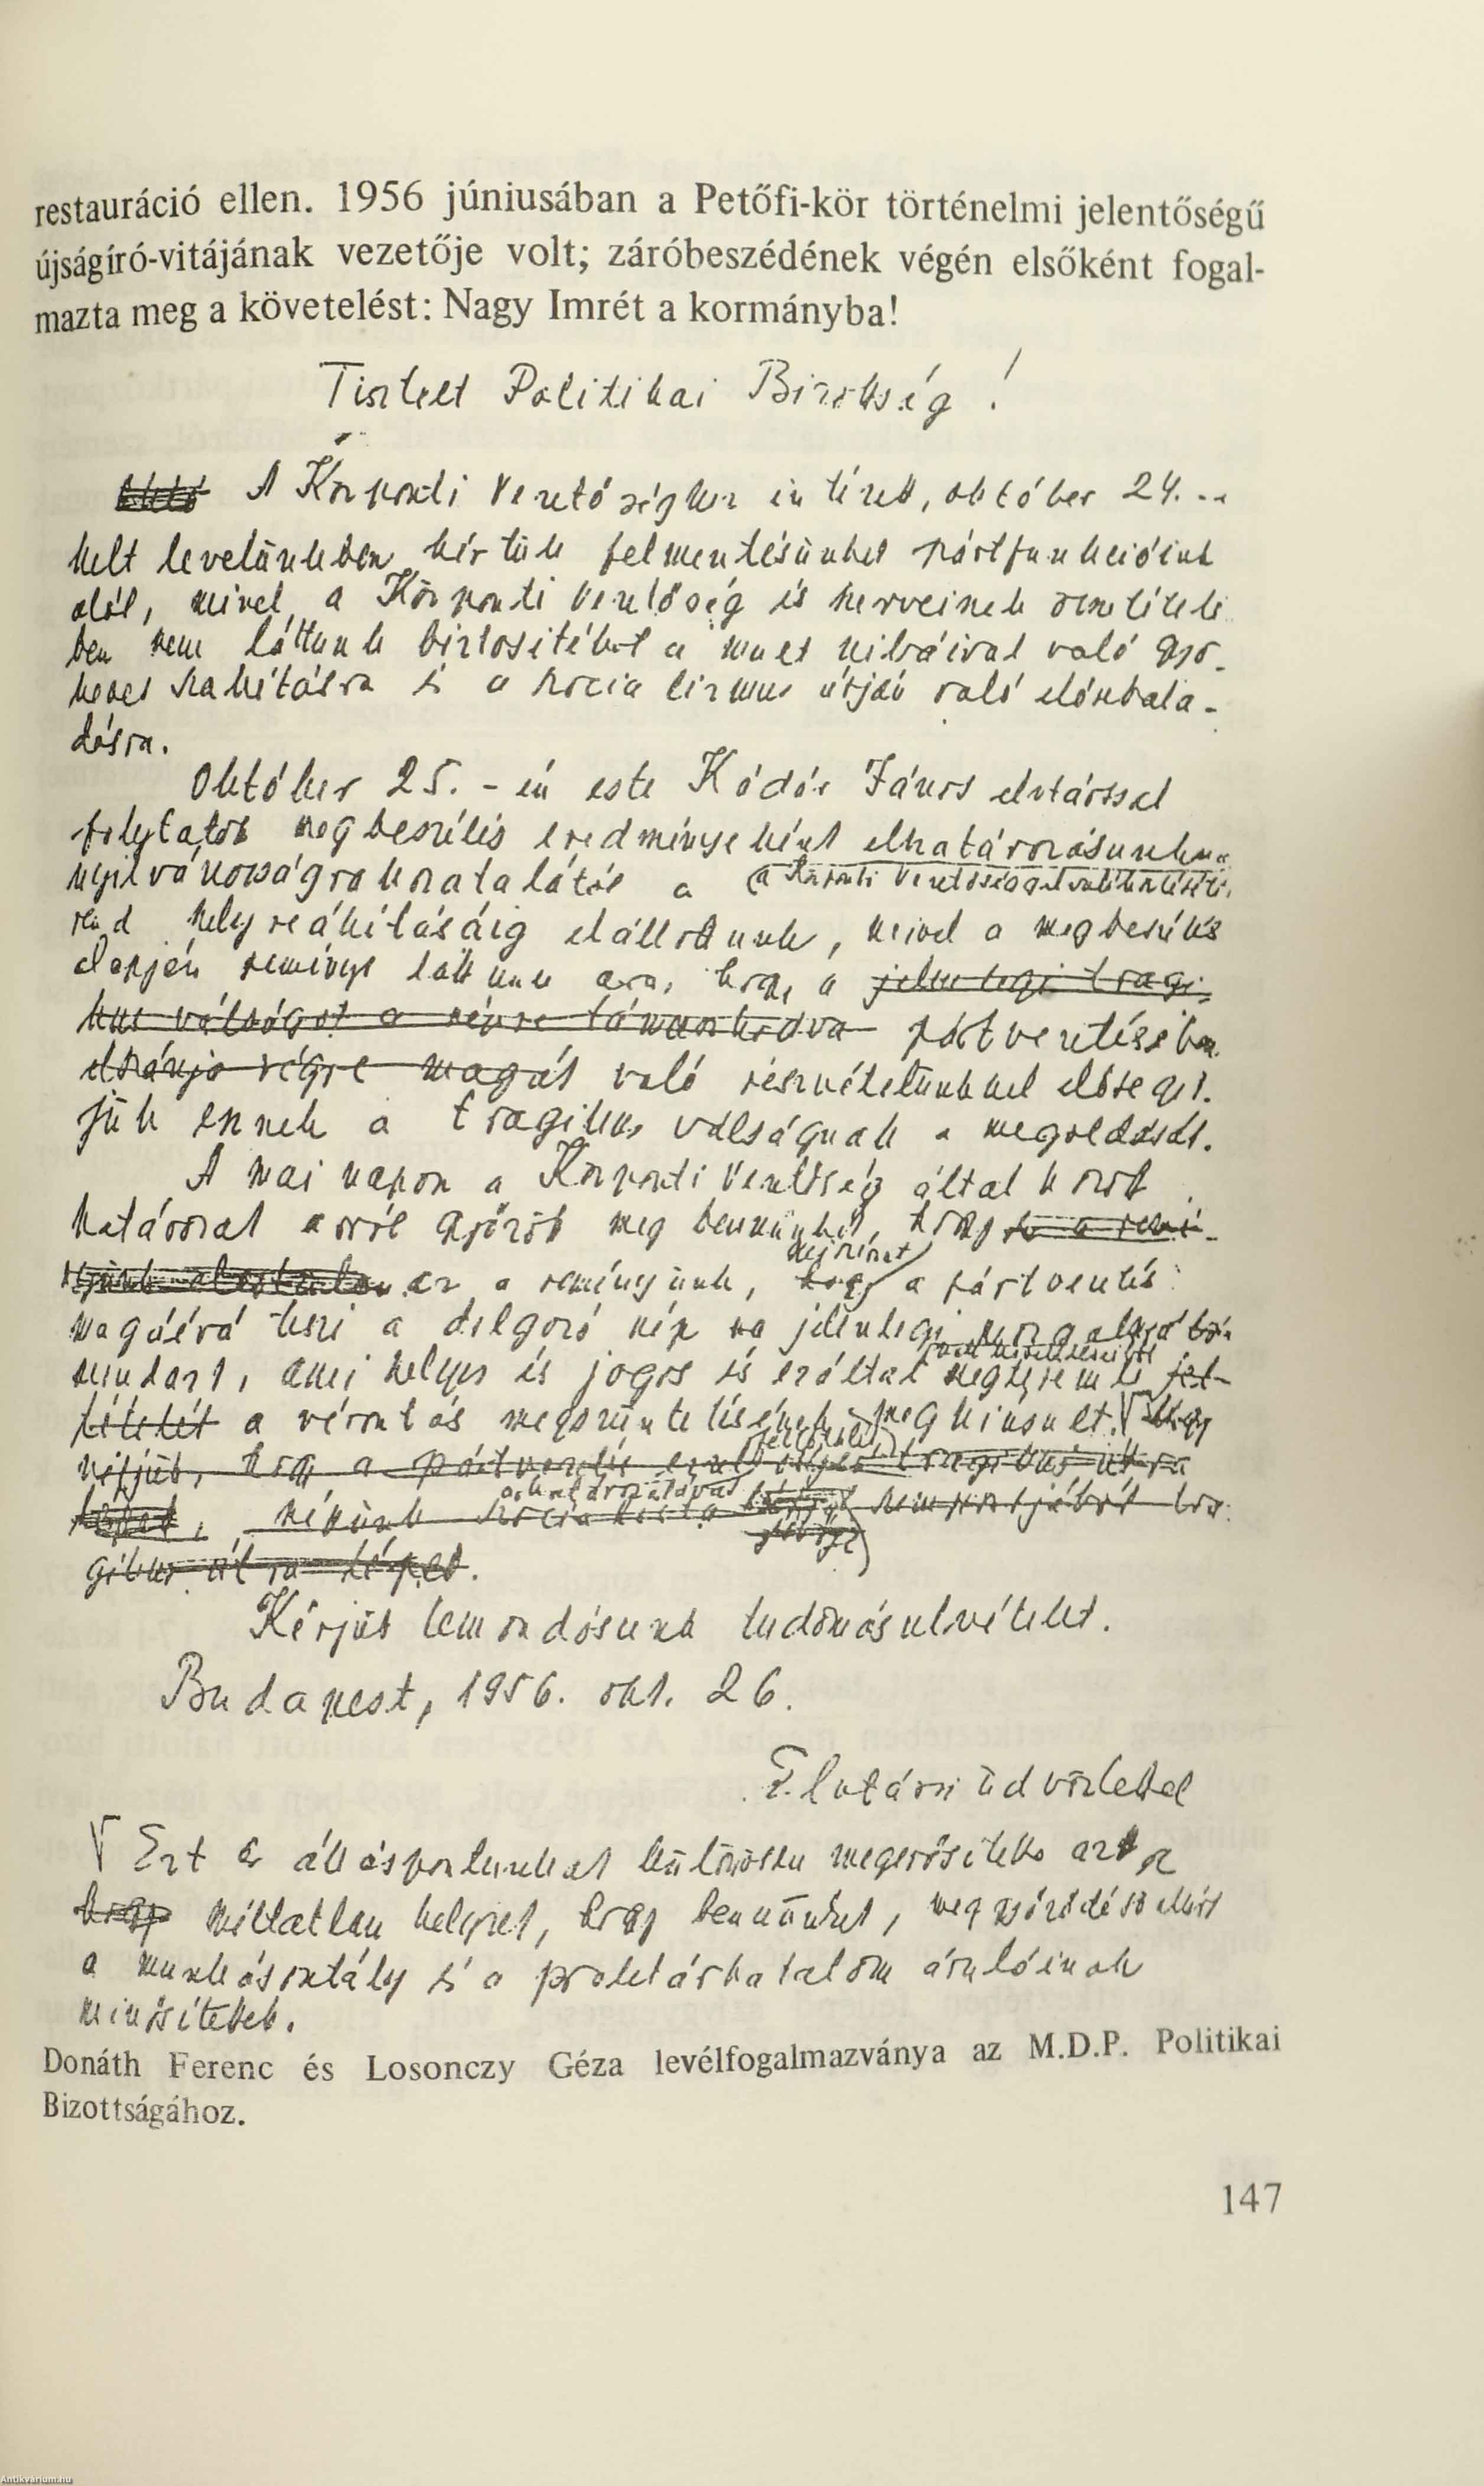 restauráció ellen. 1956 júniusában a Petőfi-kör történelmi jelentőségű
újságíró-vitájának vezetője volt; záróbeszédének végén elsőként fogal-
mazta meg a követelést: Nagy Imrét a kormányba!
Tisztelt Politikai Bizottság!
A Központi Vezetőséghez intézett, október 24.
kelt levelünkben kértük felmentésünket pártfunkcióink
alól, mivel a Központi Vezetőség és szerveinek összetételé
ben nem láttunk biztosítékot a mult hibáival való gyö-
keres szakításra és a szocializmus útján való előrehala-
dásra.
Október 25.-én este Kádár János elvtárssal
folytatott megbeszélés eredményeként elhatározásunk
nyilvánosságrahozatalától a (a Központi Vezetőség
rend helyreállításáig elállottunk, mivel a megbeszélés
alapján reményt láttunk arra, hogy a jelenlegi tragi-
kus válságot a népre támaszkodva pártvezetésében
elszánja végre magát való részvételünkkel elősegít-
jük ennek a tragikus válságnak a megoldását.
A mai napon a Központi Vezetőség által hozott
határozat arról győzött meg bennünket, hogy
az a reményünk, hogy a pártvezetés
magáévá teszi a dolgozó nép jelenlegi
mindazt, ami helyes és jogos és ezáltal megteremti fel-
tételét a vérontás megszüntetésének meghiúsult. Ugy
véljük, hogy a pártvezetés ezzel tragikus útra
lépett, népünk szocialista szempontjából tra-
gikus útra lépett.
Kérjük lemondásunk tudomásulvételét.
Budapest, 1956. okt. 26.
Elvtársi üdvözlettel
Ezt az álláspontunkat különösen megerősítette az a
hogy méltatlan helyzet, hogy bennünket, meggyőződésünkért
a munkásosztály és a proletárhatalom árulóinak
minősítettek.
Donáth Ferenc és Losonczy Géza levélfogalmazványa az M.D.P. Politikai
Bizottságához.
147
Antikvárium.hu